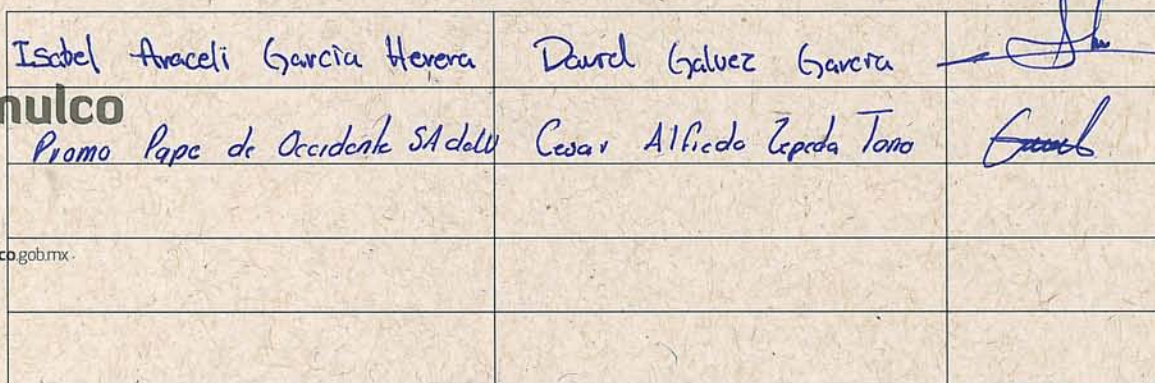 Isabel Araceli García Herera David Galvez Garcia
nulco
Promo Pape de Occidente SA de CV Cesar Alfredo Zepeda Toro
co.gob.mx